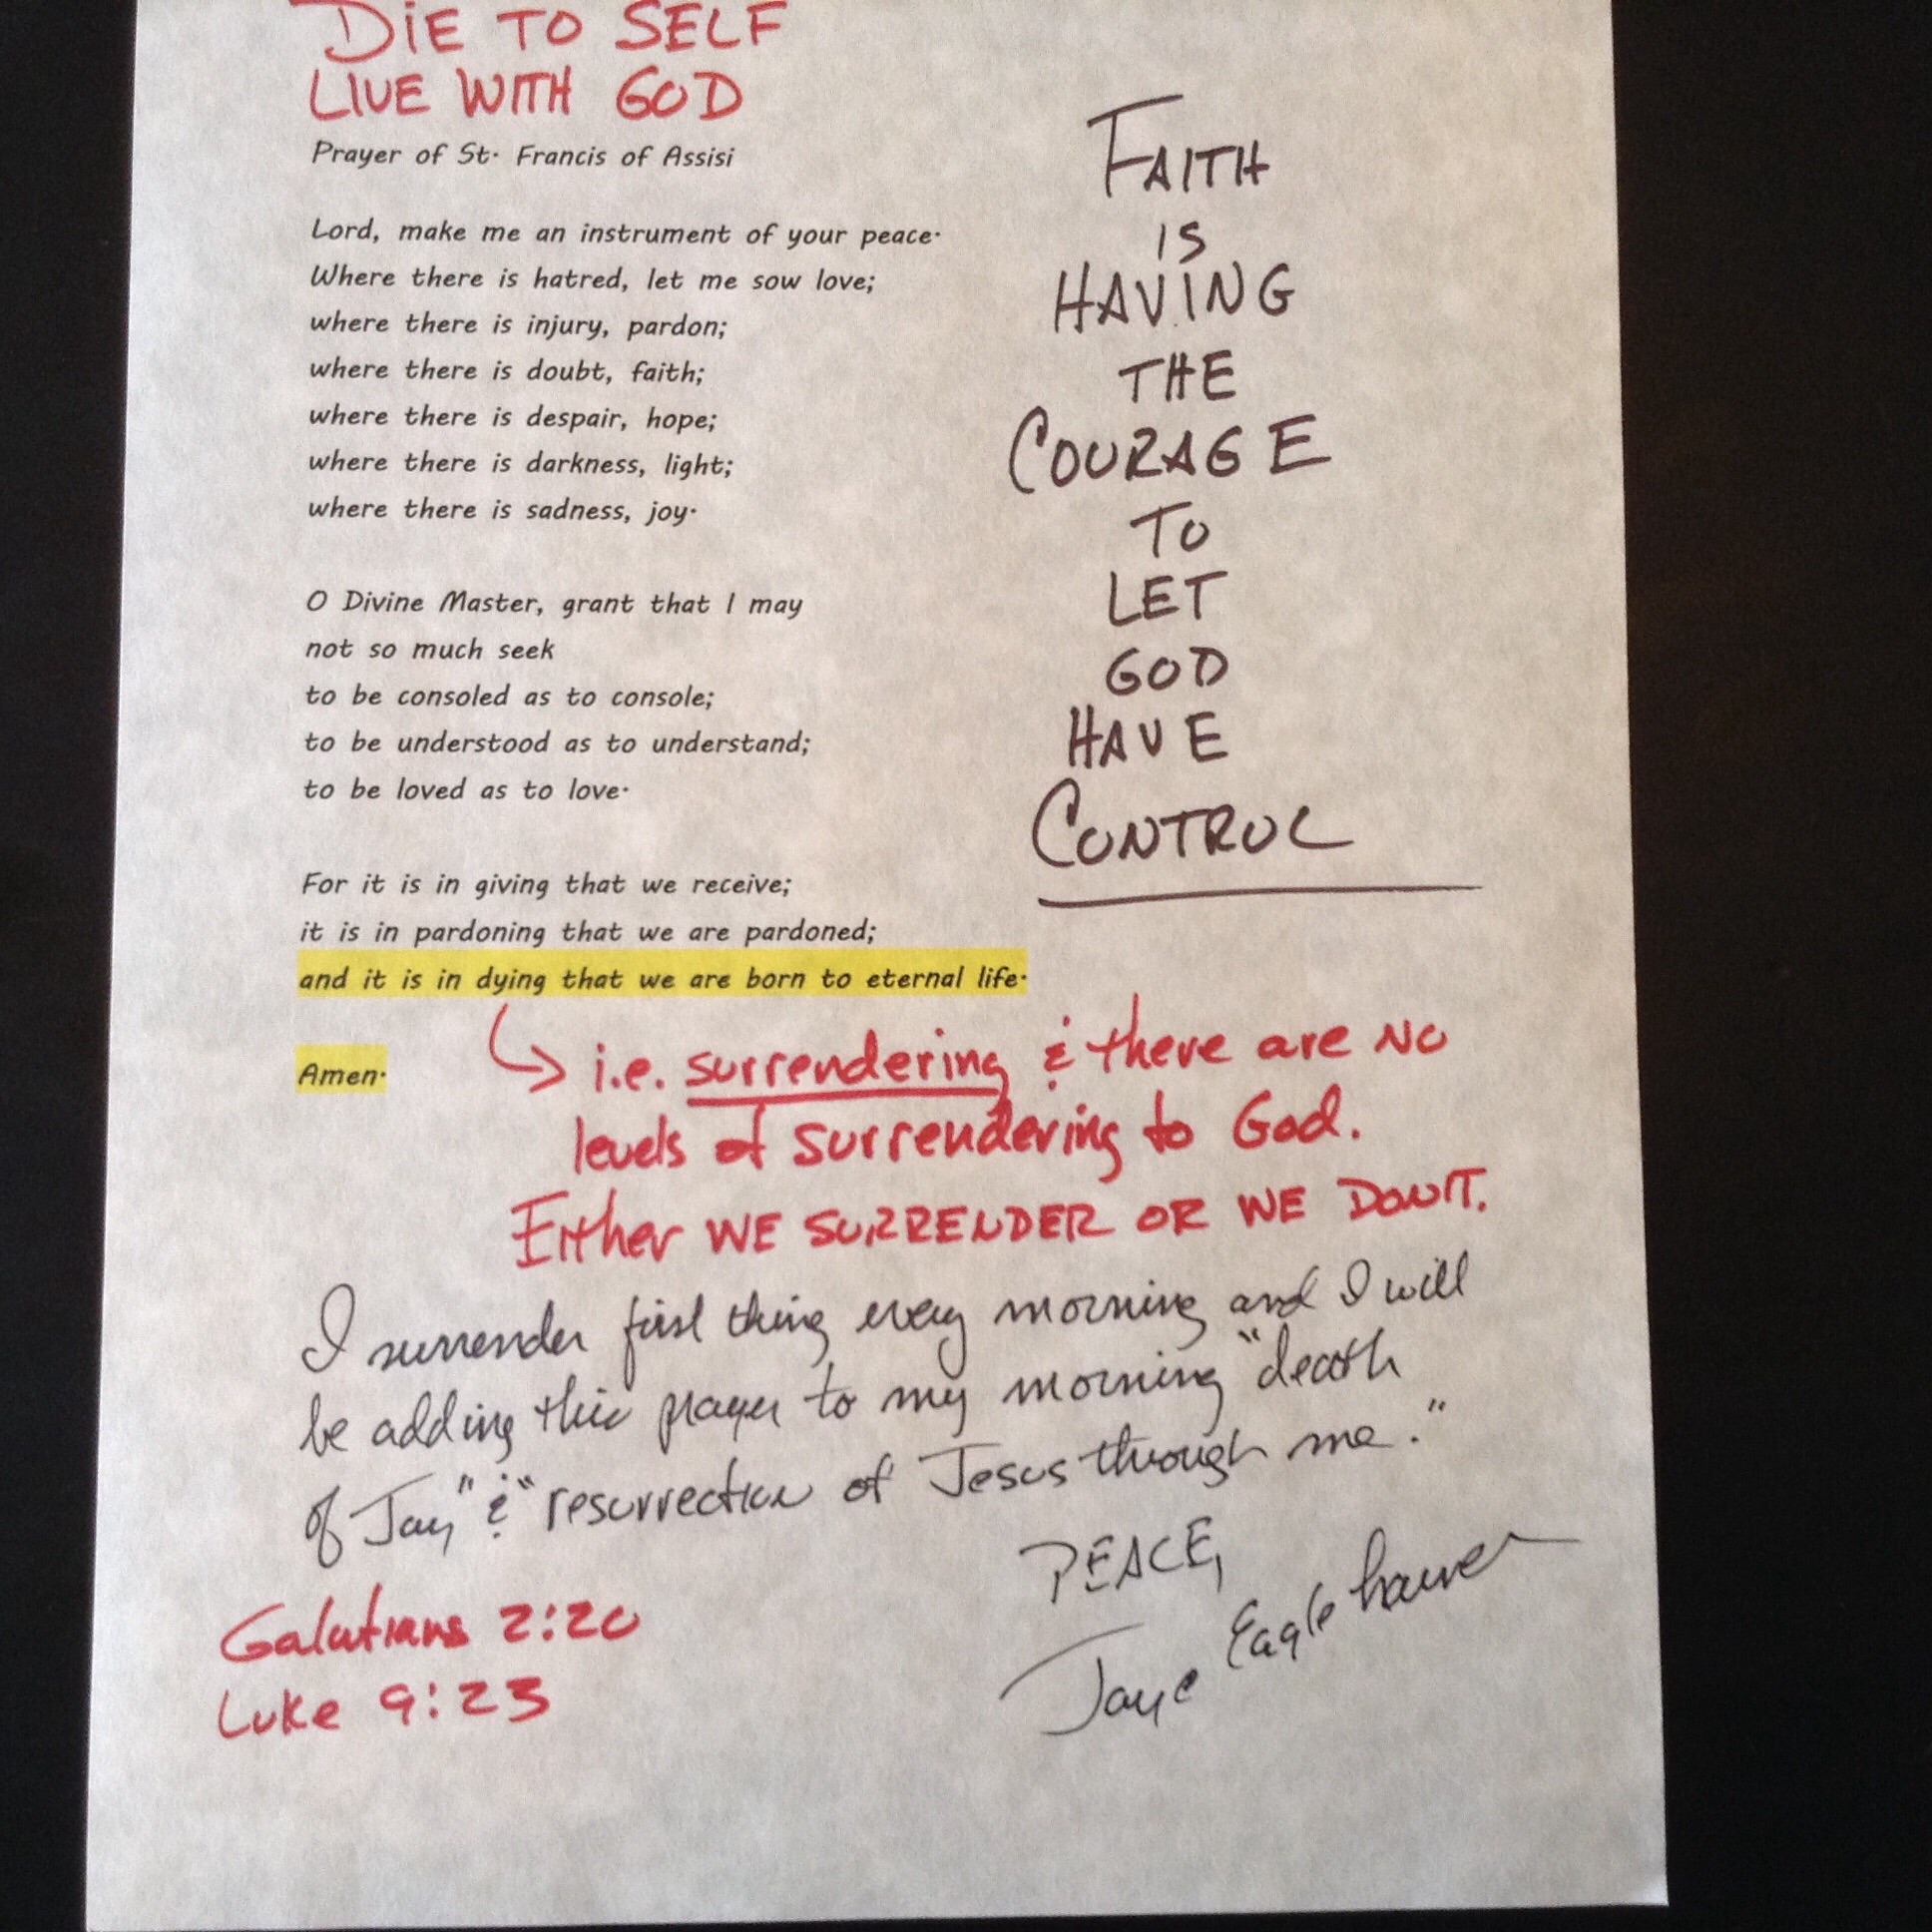 DIE TO SELF
LIVE WITH GOD
Prayer of St. Francis of Assisi
Lord, make me an instrument of your peace.
Where there is hatred, let me sow love;
where there is injury, pardon;
where there is doubt, faith;
where there is despair, hope;
where there is darkness, light;
where there is sadness, joy.
O Divine Master, grant that I may
not so much seek
to be consoled as to console;
to be understood as to understand;
to be loved as to love.
For it is in giving that we receive;
it is in pardoning that we are pardoned;
and it is in dying that we are born to eternal life.
Amen.
FAITH
IS
HAVING
THE
COURAGE
TO
LET
GOD
HAVE
CONTROL
i.e. surrendering & there are NO
levels of surrendering to God.
Either WE SURRENDER OR WE DON'T.
I surrender first thing every morning and I will
be adding this prayer to my morning "death
of Jay" & "resurrection of Jesus through me."
PEACE,
Jaye Eagle
Galatians 2:20
Luke 9:23